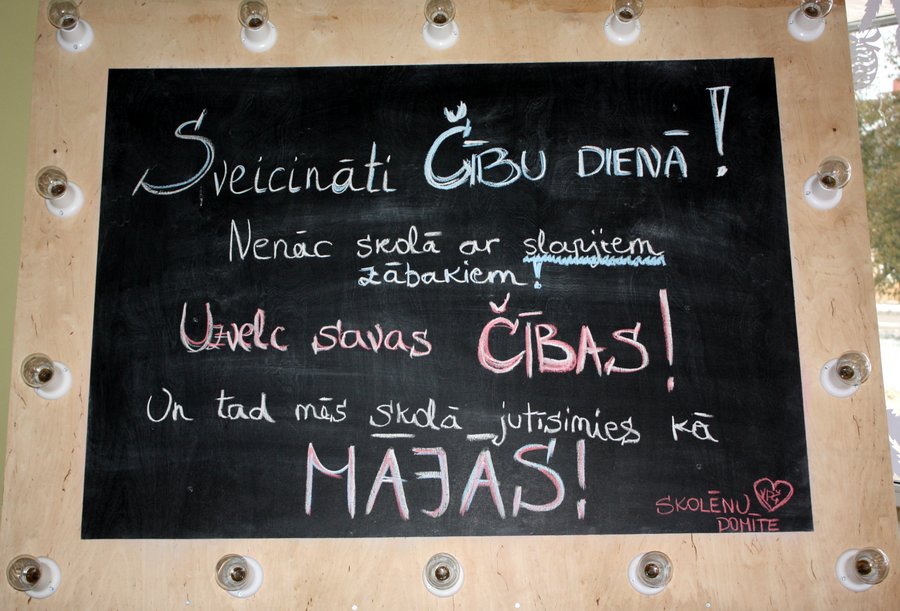 Sveicināti ČĪBU DIENĀ!
Nenāc skolā ar slapjiem
zābakiem!
Uzvelc savas ČĪBAS!
Un tad mēs skolā jutīsimies kā
MĀJĀS!
SKOLĒNU
DOMĪTE